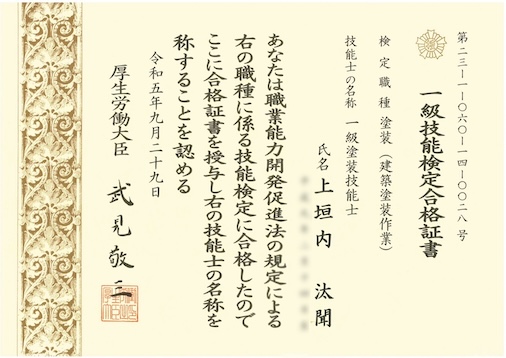 第二三-一-〇六〇-一四-〇〇二八号
一級技能検定合格証書
検定職種 塗装(建築塗装作業)
技能士の名称 一級塗装技能士
氏名 上垣内 汰聞
あなたは職業能力開発促進法の規定による
右の職種に係る技能検定に合格したので
ここに合格証書を授与し右の技能士の名称を
称することを認める
令和五年九月二十九日
厚生労働大臣 武見敬三